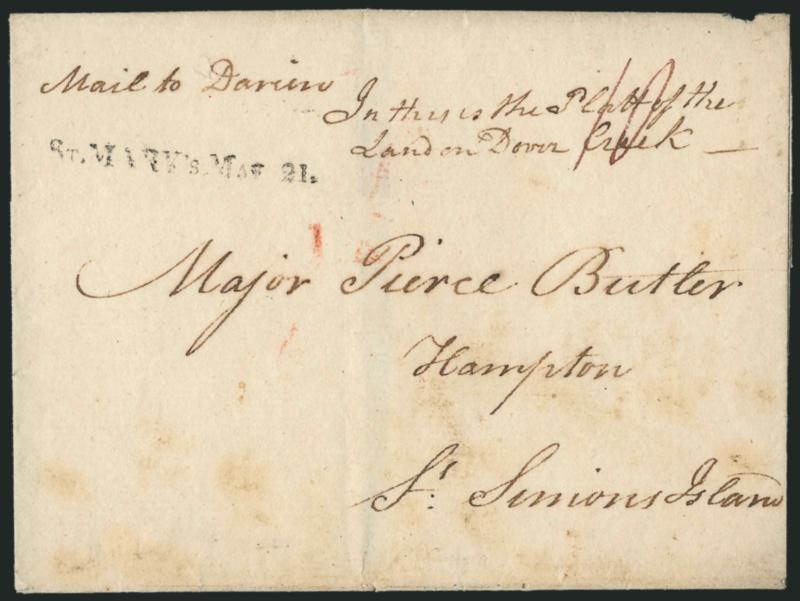 Mail to Darien
In this is the Platt of the
Land on Dover Creek
St. MARY's. MAY 21.
10
Major Pierce Butler
Hampton
St. Simons Island